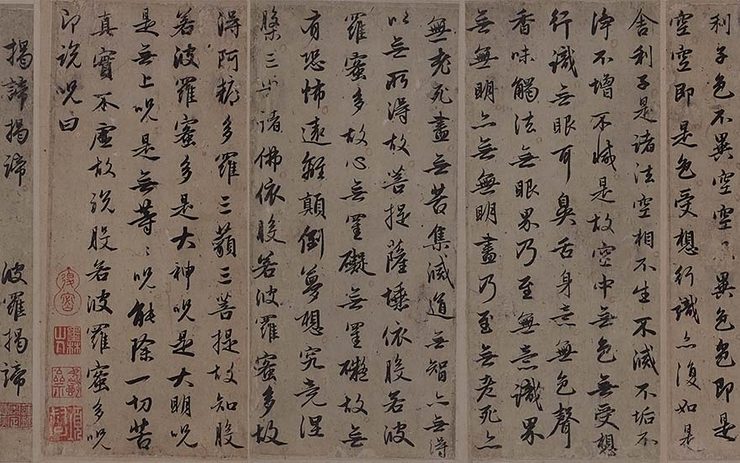 利子色不異空空不異色色即是
空空即是色受想行識亦復如是
舍利子是諸法空相不生不滅不垢不
淨不增不減是故空中無色無受想
行識無眼耳鼻舌身意無色聲
香味觸法無眼界乃至無意識界
無無明亦無無明盡乃至無老死亦
無老死盡無苦集滅道無智亦無得
以無所得故菩提薩埵依般若波
羅蜜多故心無罣礙無罣礙故無
有恐怖遠離顛倒夢想究竟涅
槃三世諸佛依般若波羅蜜多故
得阿耨多羅三藐三菩提故知般
若波羅蜜多是大神呪是大明呪
是無上呪是無等〻呪能除一切苦
真實不虛故說般若波羅蜜多呪
即說呪曰
揭諦揭諦 波羅揭諦